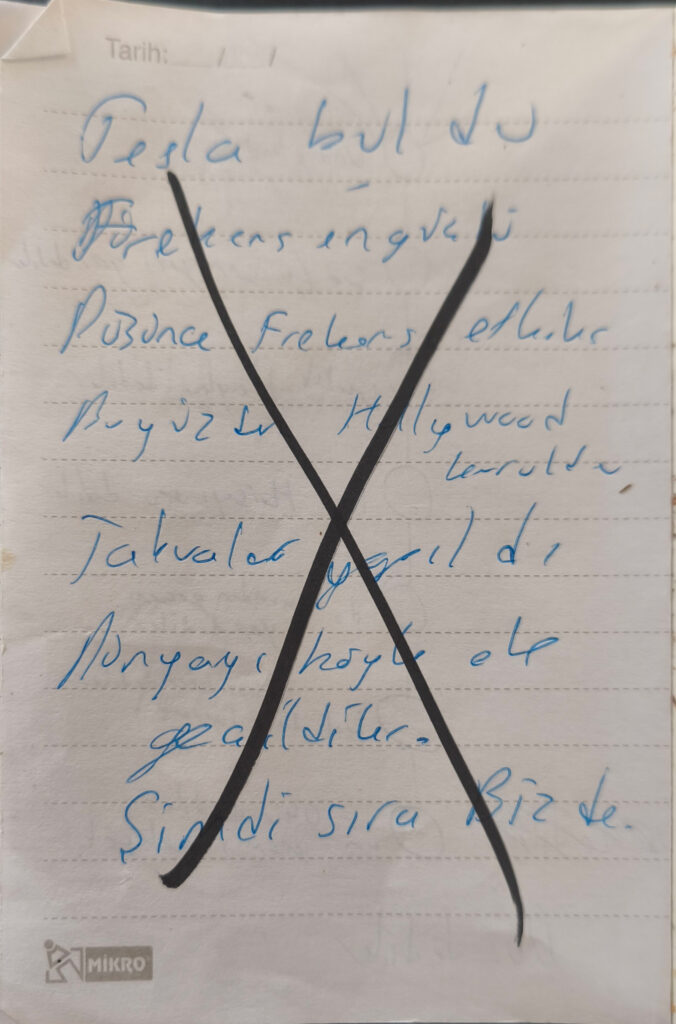 Tarih: / /
Tesla buldu
Frekans en güçlü
Düşünce Frekans etkiler
Bu yüzden Hollywood
kuruldu
yapıldı
Dünyayı böyle ele
geçirdiler.
Şimdi sıra Bizde.
MİKRO